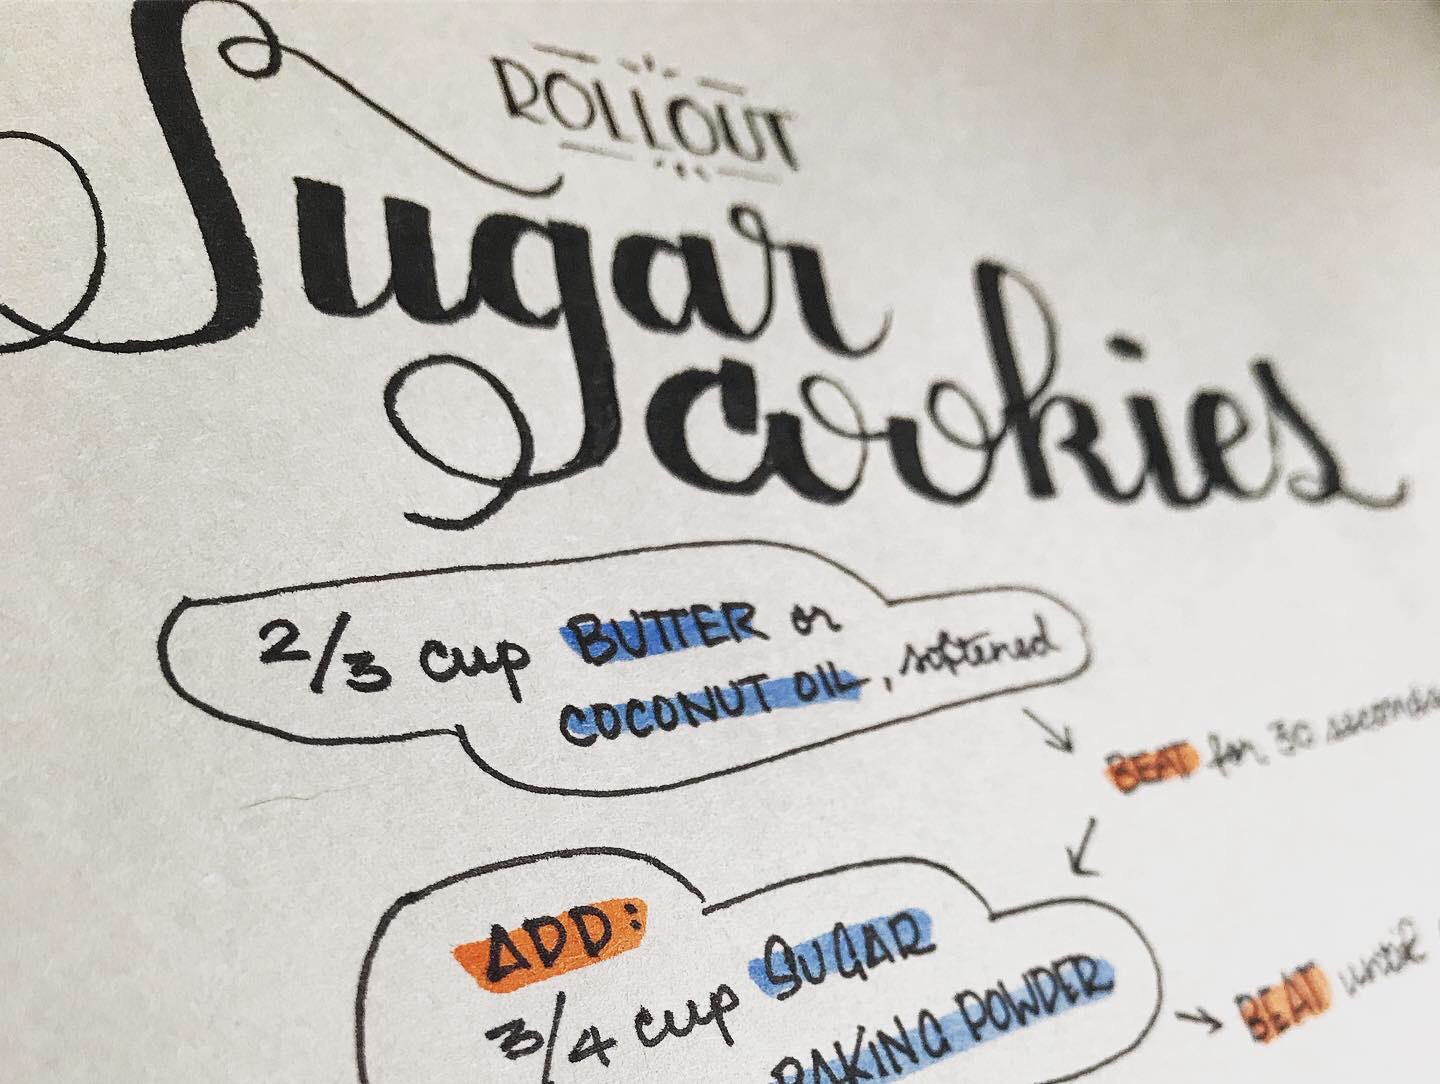 ROLLOUT
Sugar
cookies
2/3 cup BUTTER or
COCONUT OIL, softened
BEAT for 30 seconds
ADD:
3/4 cup SUGAR
BAKING POWDER
BEAT until